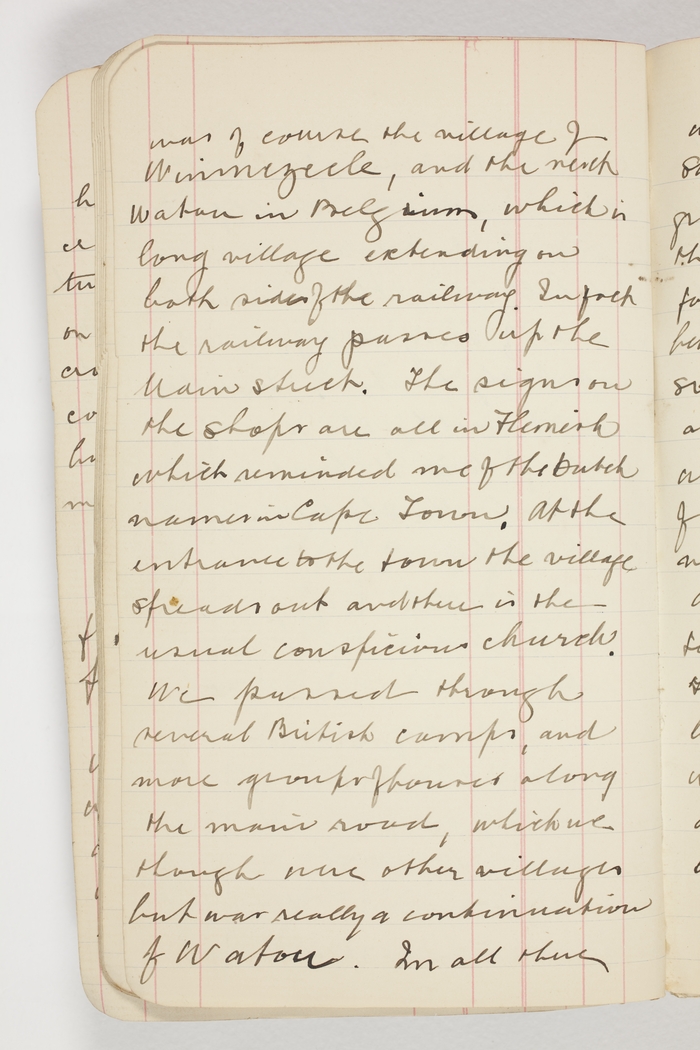 was of course the village of
Winnezeele, and the next
Watou in Belgium, which is
long village extending on
both sides of the railway. In fact
the railway passes up the
Main street. The signs on
the shops are all in Flemish
which reminded me of the Dutch
names in Cape Town. At the
entrance to the town the village
spreads out and there is the
usual conspicious church.
We passed through
several British camps, and
more groups of houses along
the main road, which we
though were other villages
but was really a continuation
of Watou. In all these